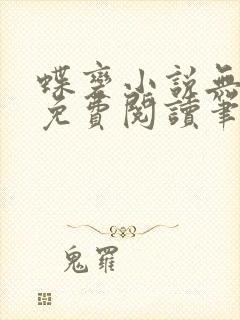 蝶變小說無
免費閱讀筆
鬼羅